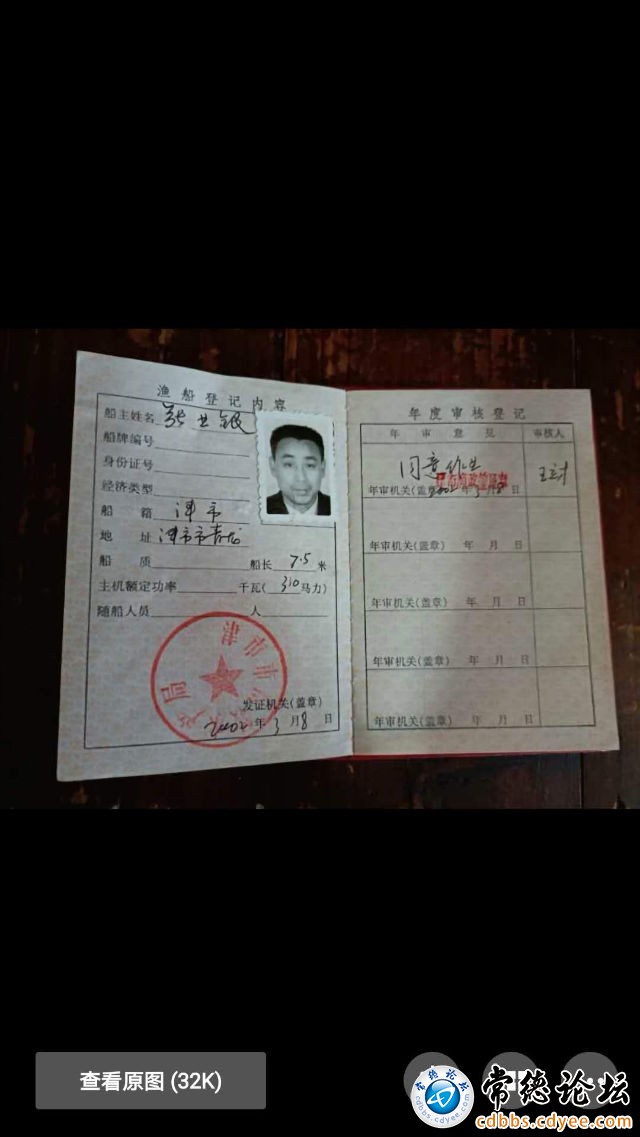 渔船登记内容
船主姓名
船牌编号
身份证号
经济类型
船 籍 津市
地 址 津市市青龙
船 质 船长 7.5 米
主机额定功率 千瓦( 310 马力)
随船人员 人
发证机关(盖章)
2002 年 3 月 8 日
年度审核登记
年 审 意 见 审核人
同意作业
年审机关(盖章) 2002 年 3 月 8 日
年审机关(盖章) 年 月 日
年审机关(盖章) 年 月 日
年审机关(盖章) 年 月 日
年审机关(盖章) 年 月 日
查看原图 (32K)
常德论坛
cdbbs.cdyee.com